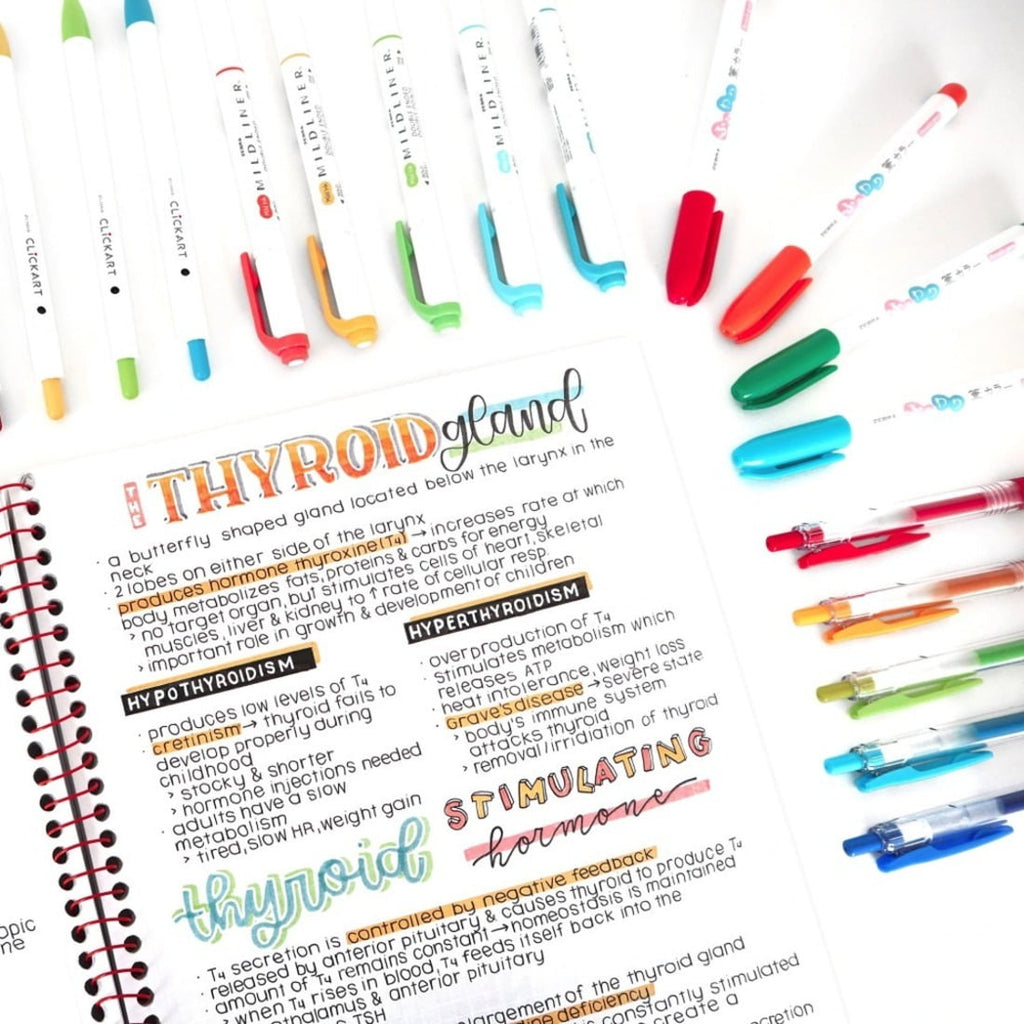 CLICKART
CLICKART
CLICKART
MILDLINER
MILDLINER
MILDLINER
MILDLINER
MILDLINER
筆カラー
筆カラー
筆カラー
筆カラー
THE THYROID gland
· a butterfly shaped gland located below the larynx in the
neck
· 2 lobes on either side of the larynx
· produces hormone thyroxine (T4) → increases rate at which
body metabolizes fats, proteins & carbs for energy
> no target organ, but stimulates cells of heart, skeletal
muscles, liver & kidney to ↑ rate of cellular resp.
> important role in growth & development of children
HYPOTHYROIDISM
· produces low levels of T4
· cretinism → thyroid fails to
develop properly during
childhood
> stocky & shorter
> hormone injections needed
· adults have a slow
metabolism
> tired, slow HR, weight gain
HYPERTHYROIDISM
· overproduction of T4
· stimulates metabolism which
releases ATP
· heat intolerance, weight loss
· Grave's disease → severe state
> body's immune system
attacks thyroid
> removal/irridiation of thyroid
thyroid
STIMULATING
hormone
· T4 secretion is controlled by negative feedback
· released by anterior pituitary & causes thyroid to produce T4
· amount of T4 remains constant → homeostasis is maintained
> when T4 rises in blood, T4 feeds itself back into the
thalamus & anterior pituitary
TSH
largement of the thyroid gland
ine deficiency
is constantly stimulated
create a
secretion
opic
ne